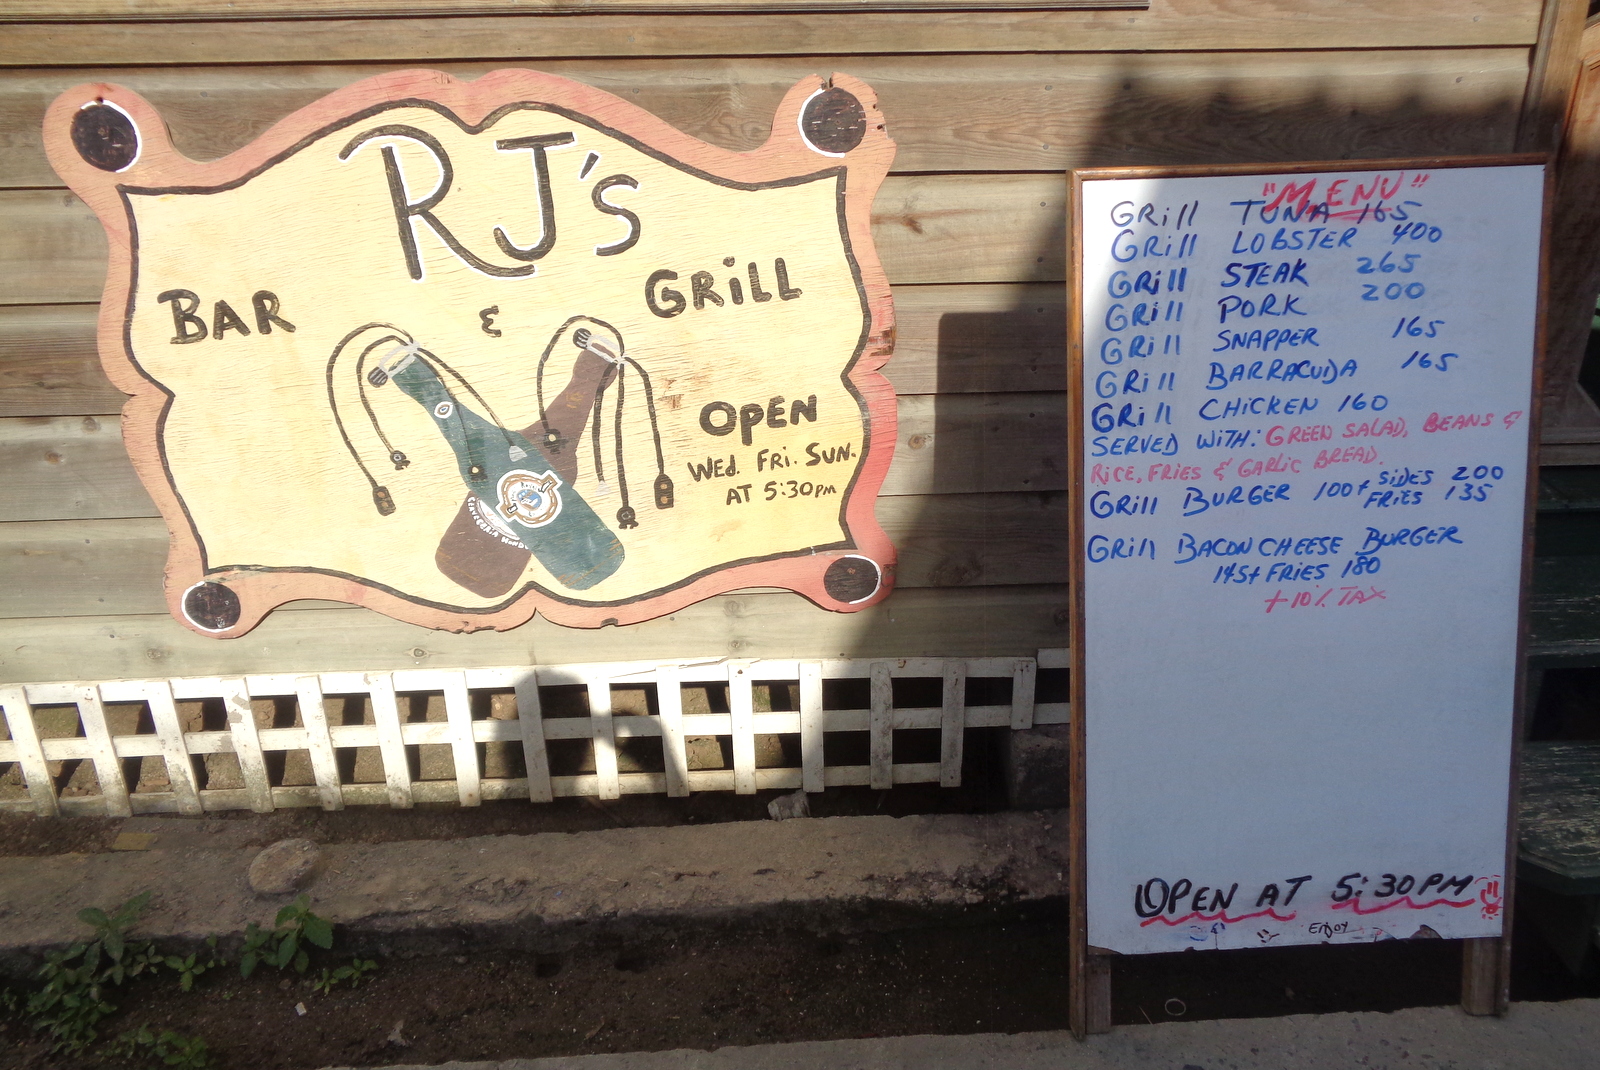 RJ's
BAR & GRiLL
OPEN
WED. FRI. SUN.
AT 5:30PM
CERVECERIA HONDU
"MENU"
GRill TUNA 165
GRill LOBSTER 400
GRill STEAK 265
GRill PORK 200
GRill SNAPPER 165
GRill BARRACUDA 165
GRill CHICKEN 160
SERVED WITH: GREEN SALAD, BEANS &
RICE, FRIES & GARLIC BREAD.
GRill BURGER 100+ SiDES 200
FRiES 135
GRill BACON CHEESE BURGER
145+ FRIES 180
+10% TAX
OPEN AT 5:30PM
ENJOY